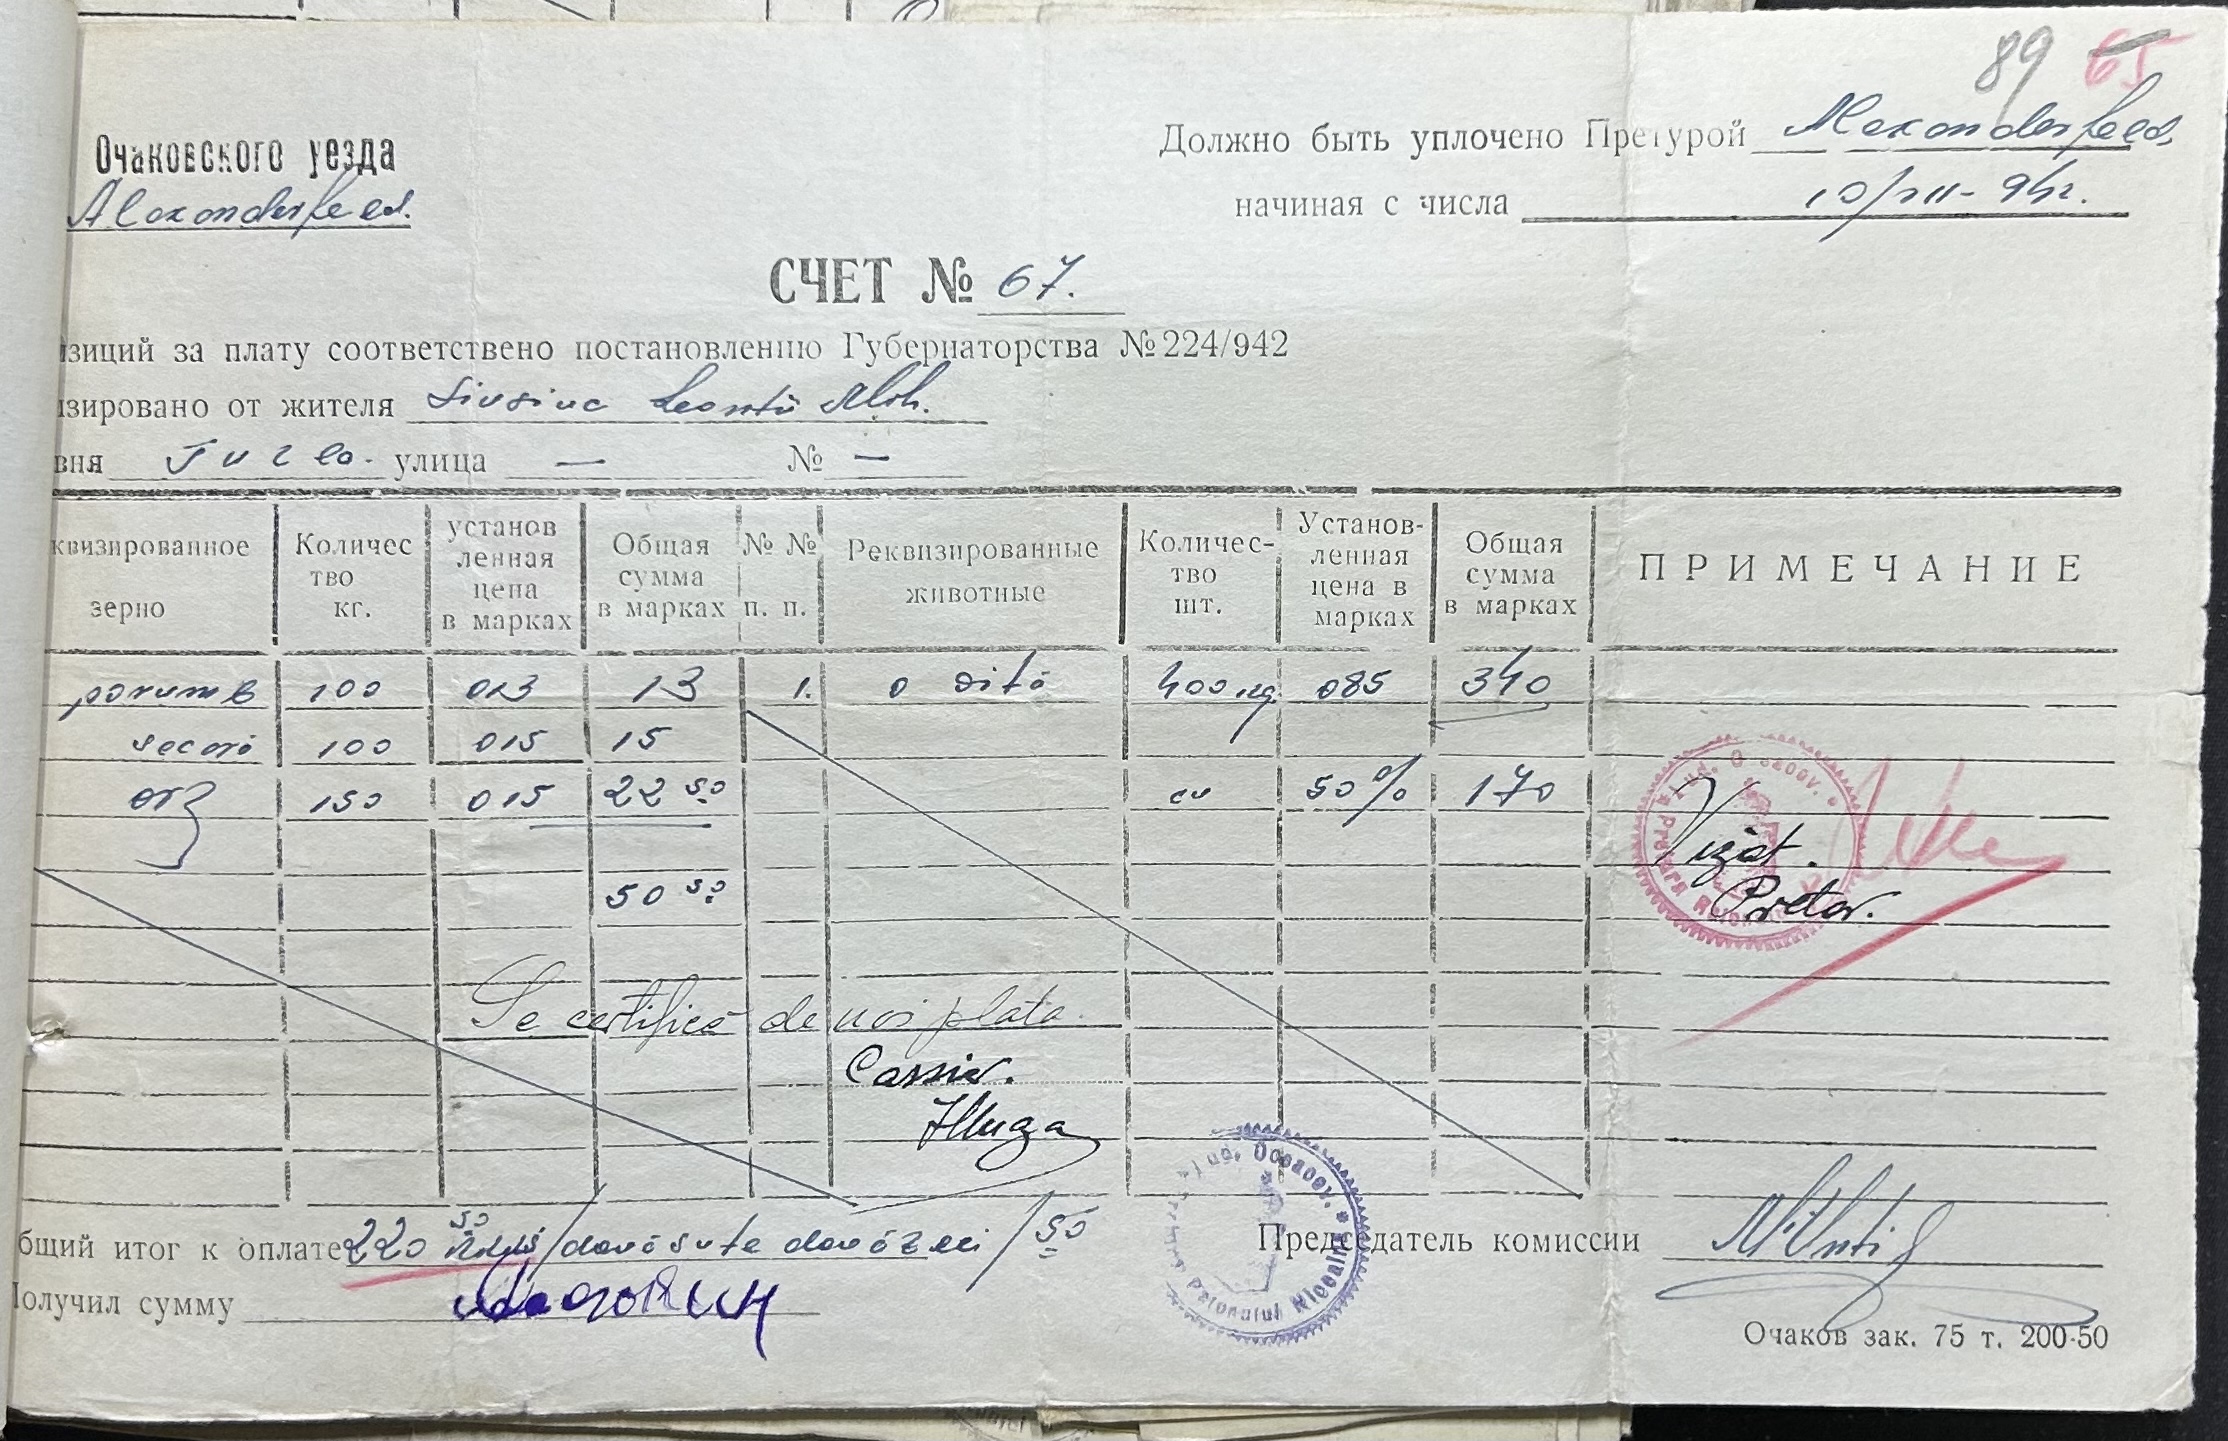 89 65
Очаковского уезда
Alexanderfeld.
Должно быть уплочено Претурой Alexanderfeld.
начиная с числа 10/XII-942.
СЧЕТ № 67.
зиций за плату соответствено постановлению Губернаторства № 224/942
изировано от жителя
вня улица — № —
квизированное зерно
Количес тво кг.
установ ленная цена в марках
Общая сумма в марках
№ № п. п.
Реквизированные животные
Количес- тво шт.
Установ- ленная цена в марках
Общая сумма в марках
ПРИМЕЧАНИЕ
porumb 100 013 13 1. o vită 400 kg. 085 340
secară 100 015 15
orz 150 015 22 50 cu 50% 170
50 50
Vizat.
Pretor.
Se certifică de noi plata.
Cassier.
бщий итог к оплате 220 50 /două sute două zeci/50
Получил сумму
Председатель комиссии
Jud. Oceacov.
Очаков зак. 75 т. 200-50